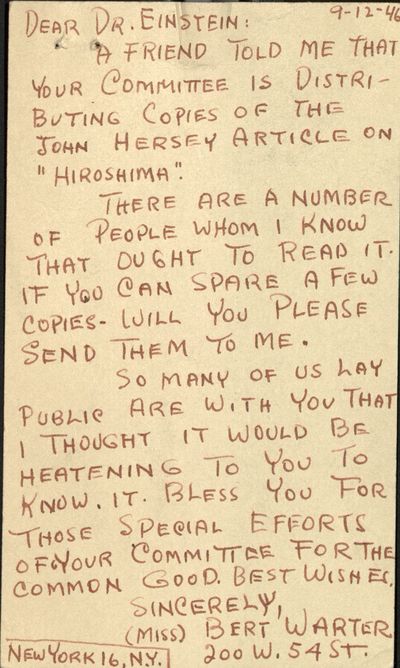 9-12-46
DEAR DR. EINSTEIN:
A FRIEND TOLD ME THAT
YOUR COMMITTEE IS DISTRI-
BUTING COPIES OF THE
JOHN HERSEY ARTICLE ON
"HIROSHIMA".
THERE ARE A NUMBER
OF PEOPLE WHOM I KNOW
THAT OUGHT TO READ IT.
IF YOU CAN SPARE A FEW
COPIES- WILL YOU PLEASE
SEND THEM TO ME.
SO MANY OF US LAY
PUBLIC ARE WITH YOU THAT
I THOUGHT IT WOULD BE
HEATENING TO YOU TO
KNOW. IT. BLESS YOU FOR
THOSE SPECIAL EFFORTS
OF YOUR COMMITTEE FOR THE
COMMON GOOD. BEST WISHES.
SINCERELY,
(MISS) BERT WARTER.
NEW YORK 16, N.Y. 200 W. 54 ST.